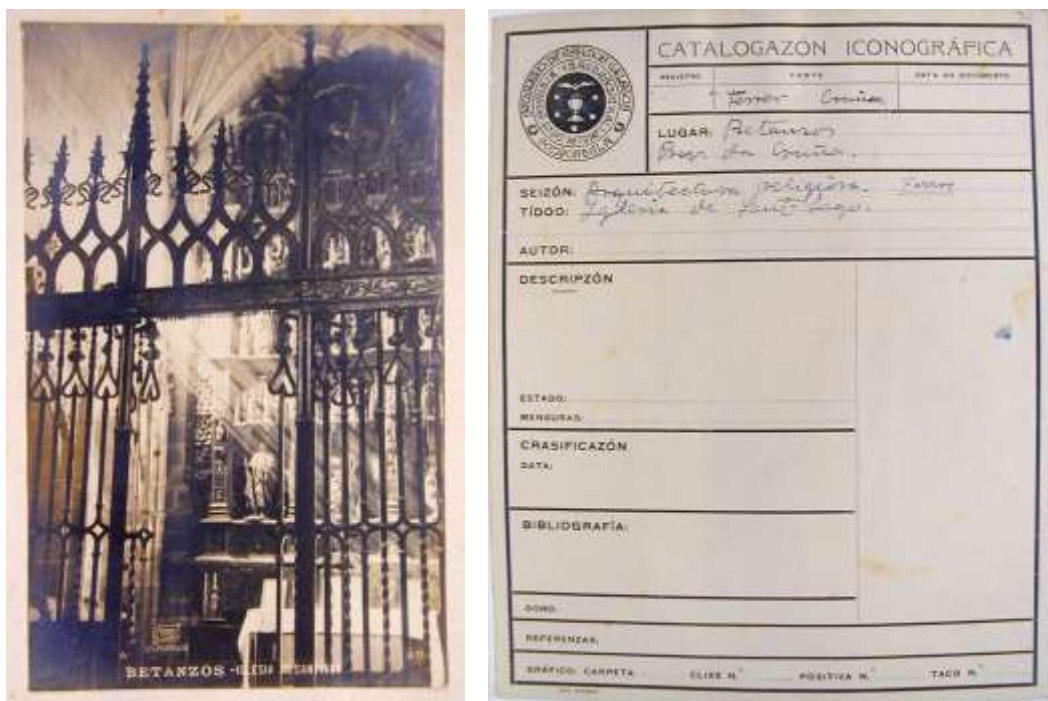 BETANZOS - IGLESIA DE SANTIAGO
CATALOGAZÓN ICONOGRÁFICA
REGISTRO FONTE DATA DO DOCUMENTO
Ferrer Coruña
LUGAR: Betanzos
Prov. da Coruña.
SEIZÓN: Arquitectura religiosa. Ferros
TÍDOO: Iglesia de Sant-Iago.
AUTOR:
DESCRIPZÓN
ESTADO:
MENSURAS:
CRASIFICAZÓN
DATA:
BIBLIOGRAFÍA:
DONO:
REFERENZAS:
GRÁFICO: CARPETA CLIXE N.° POSITIVA N.° TACO N.°